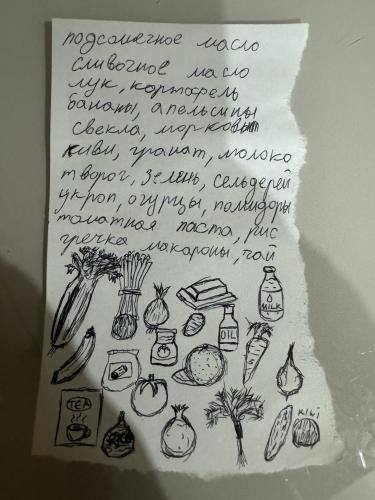 подсолнечное масло
сливочное масло
лук, картофель
бананы, апельсины
свекла, морковь
киви, гранат, молоко
творог, зелень, сельдерей
укроп, огурцы, помидоры
томатная паста, рис
гречка макароны, чай
MILK
OIL
TEA
RICE
KIWI